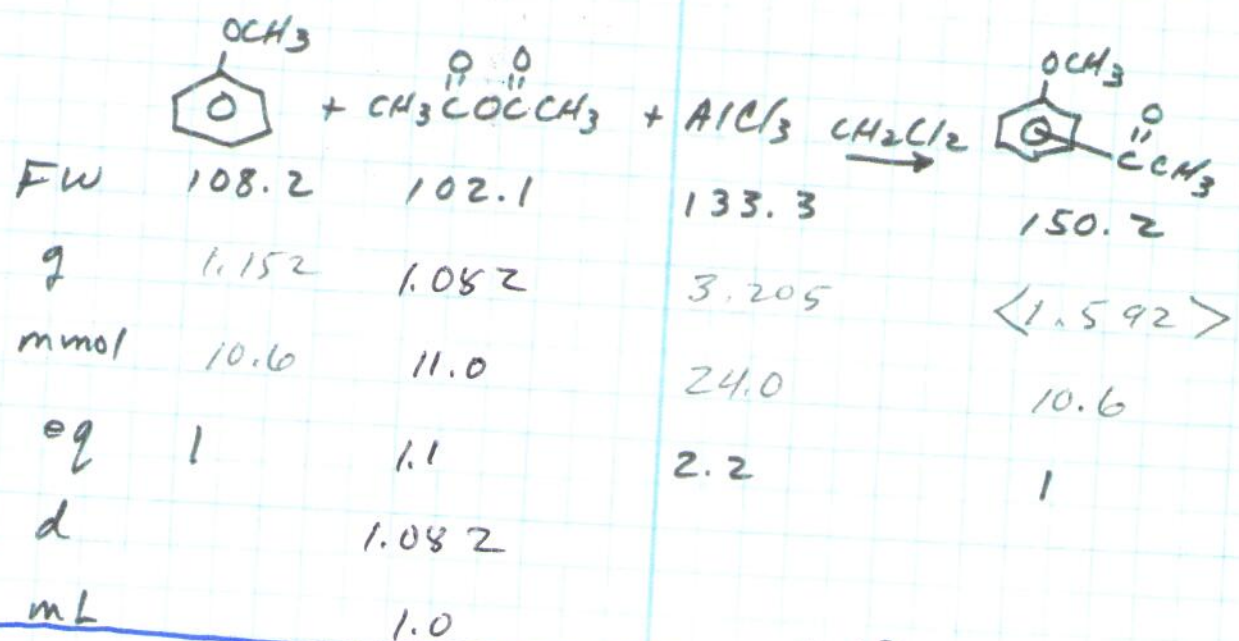 OCH3
O O OCH3
+ CH3COCCH3 + AlCl3 CH2Cl2 → O
CCH3
FW 108.2 102.1 133.3 150.2
g 1.152 1.082 3.205 <1.592>
mmol 10.6 11.0 24.0 10.6
eq 1 1.1 2.2 1
d 1.082
mL 1.0